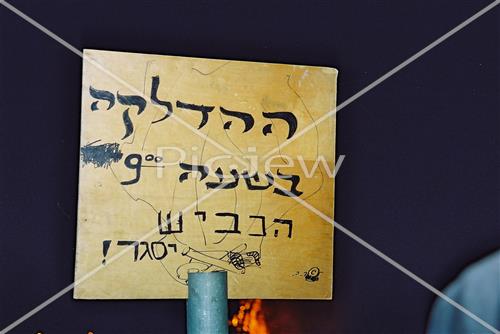 ההדלקה
בשעה 9⁰⁰
הכביש
יסגר!
Picjew